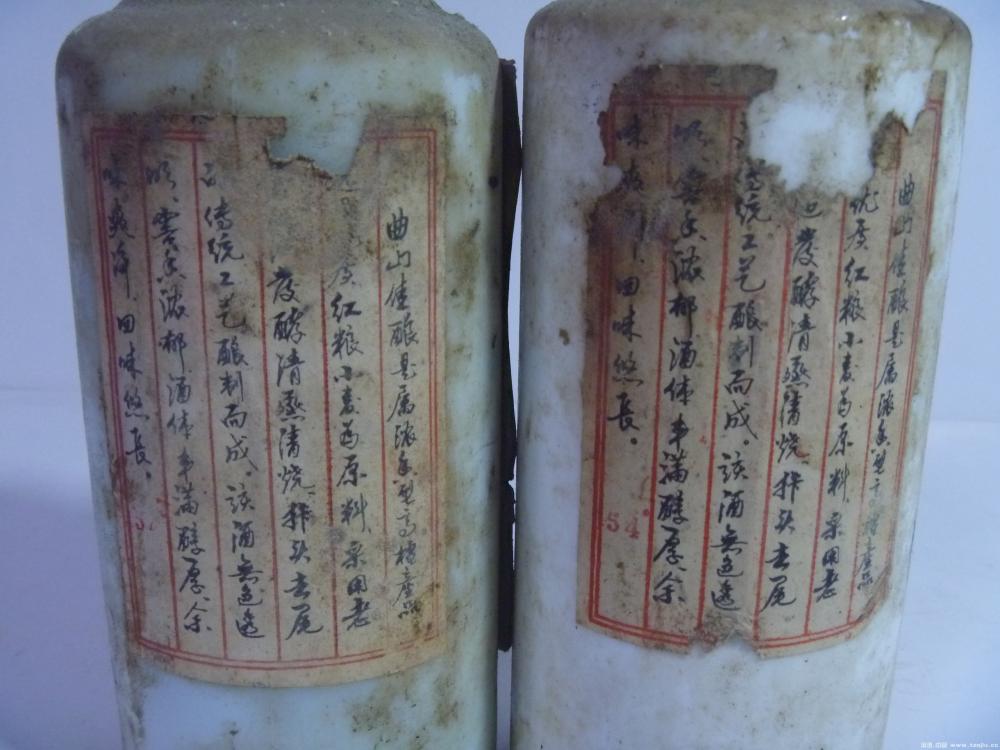 曲山佳酿是属浓香型高档产品
质红粮小麦为原料、采用老
发酵清蒸清烧、掐头去尾
传统工艺酿制而成。该酒无色透
明、窖香浓郁酒体丰满醇厚余
味爽净、回味悠长。
曲山佳酿是属浓香型高档产品
优质红粮小麦为原料、采用老
发酵清蒸清烧、掐头去尾
传统工艺酿制而成。该酒无色透
明、窖香浓郁酒体丰满醇厚余
味爽 回味悠长。
54°